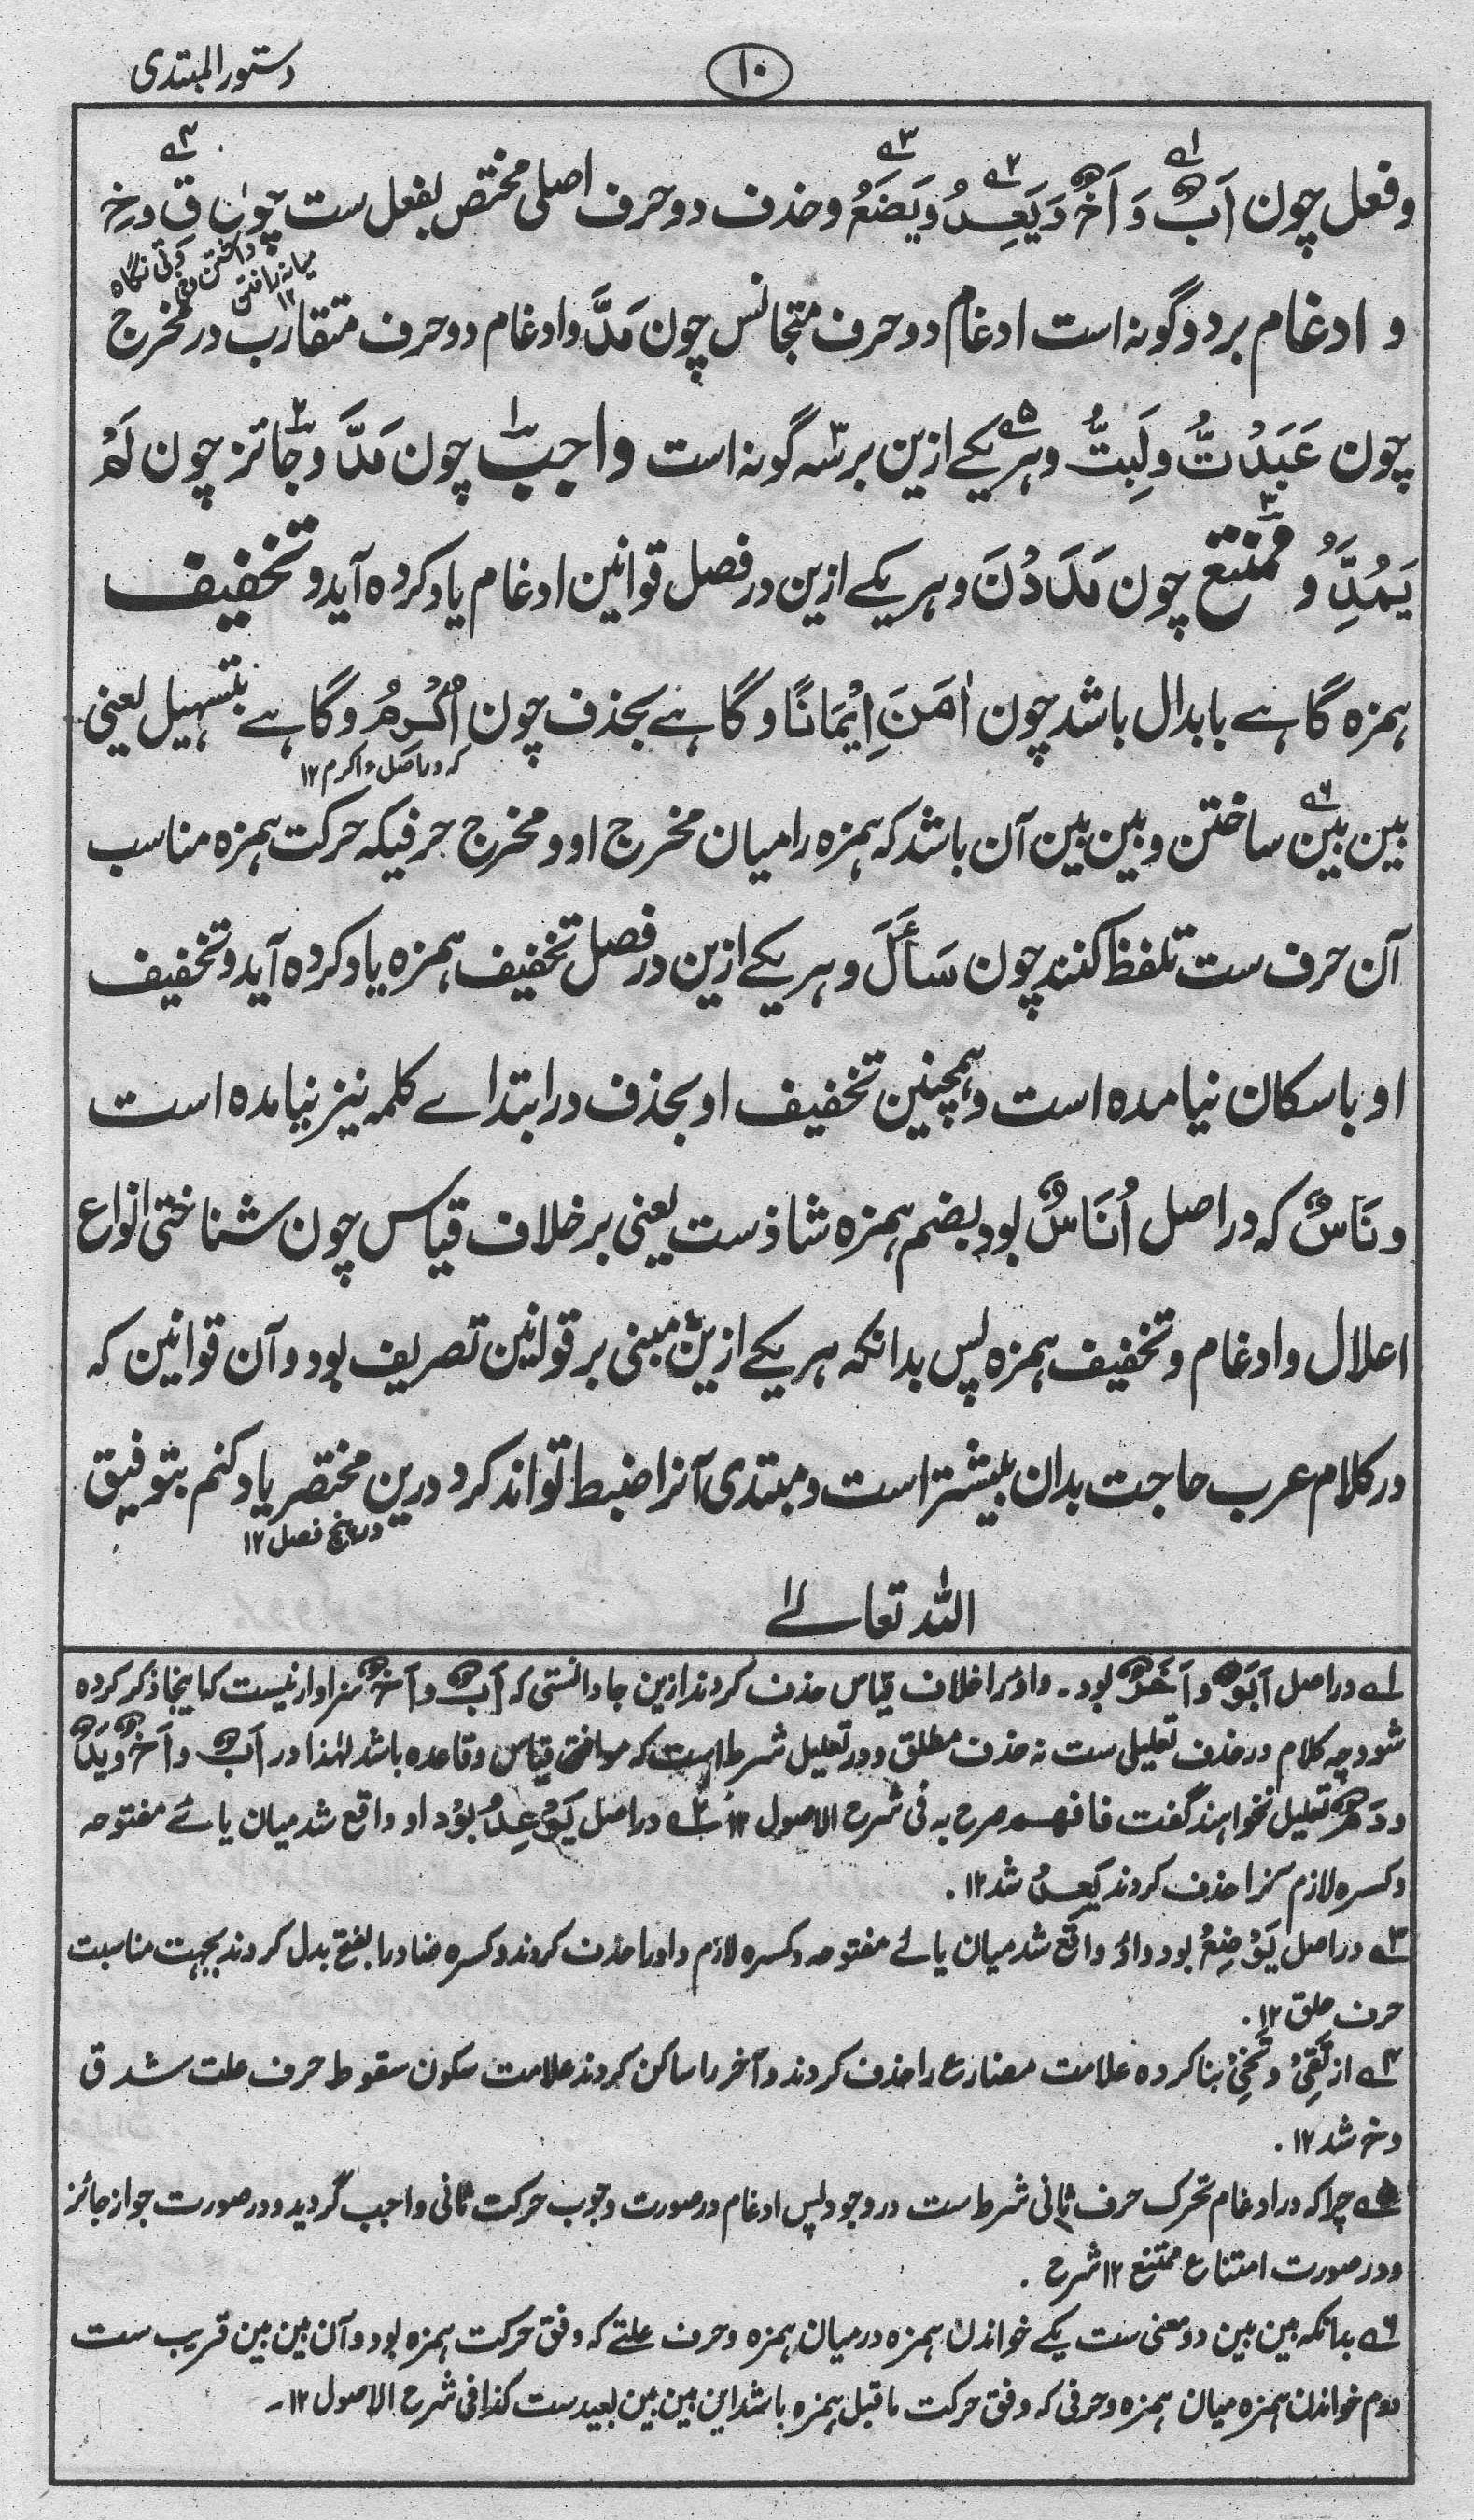 دستور المبتدی
۱۰
وفعل چون اَبٌ وَ اَخٌ وَیَعِدُ وَیَضَعُ وحذف دوحرف اصلی مختص بفعل ست چون قِ ورخِ
و ادغام بردوگونہ است ادغام دوحرف متجانس چون مَدَّ وادغام دوحرف متقارب درمخرج
چون عَبَدْتُّ ولَبِتُّ وہریکے ازین برسہ گونہ است واجب چون مَدَّ وجائز چون لَمْ
یَمُدَِّ وممتنع چون مَدَدْنَ وہریکے ازین درفصل قوانین ادغام یادکردہ آید وتخفیف
ہمزہ گاہے بابدال باشد چون اٰمَنَ اِیْمَانًا وگاہے بحذف چون اُکْرِمُ وگاہے بتسہیل یعنی
کہ دراصل ءاکرم ۱۲
بین بین ساختن وبین بین آن باشد کہ ہمزہ رامیان مخرج او ومخرج حرفیکہ حرکت ہمزہ مناسب
آن حرف ست تلفظ کنند چون سَأَلَ وہریکے ازین درفصل تخفیف ہمزہ یادکردہ آید وتخفیف
او باسکان نیامدہ است وہمچنین تخفیف او بحذف درابتداے کلمہ نیز نیامدہ است
ونَاسٌ کہ دراصل اُنَاسٌ بود بضم ہمزہ شاذست یعنی برخلاف قیاس چون شناختی انواع
اعلال وادغام وتخفیف ہمزہ پس بدانکہ ہریکے ازین مبنی برقوانین تصریف بود وآن قوانین کہ
درکلام عرب حاجت بدان بیشتر است ومبتدی آنرا ضبط تواند کرد درین مختصر یاد کنم بتوفیق
درپنج فصل ۱۲
اللہ تعالےٰ
۱ دراصل اَبَوٌ واَخَوٌ بود۔ واؤ را خلاف قیاس حذف کردند ازین جا دانستی کہ اَبٌ واَخٌ سزاوار نیست کہ اینجا ذکر کردہ
شود چہ کلام درحذف تعلیلی ست نہ حذف مطلق ودرتعلیل شرط است کہ موافق قیاس وقاعدہ باشد لہٰذا در اَبٌ واَخٌ ویَدٌ
ودَمٌ تعلیل نخواہند گفت فافہم صرح بہ فی شرح الاصول ۱۲ ۲ دراصل یَوْعِدُ بود واو واقع شد میان یائے مفتوحہ
وکسرہ لازم آنرا حذف کردند یَعِدُ شد ۱۲.
۳ دراصل یَوْضِعُ بود واؤ واقع شد میان یائے مفتوحہ وکسرہ لازم واورا حذف کردند وکسرہ ضاد را بفتح بدل کردند بجہت مناسبت
حرف حلق ۱۲.
۴ از تَقِیْ وتَخِیْ بنا کردہ علامت مضارع را حذف کردند وآخر را ساکن کردند علامت سکون سقوط حرف علت شد ق
وخ شد ۱۲.
۵ چراکہ درادغام تحرک حرف ثانی شرط ست دروجود پس ادغام درصورت وجوب حرکت ثانی واجب گردید ودرصورت جواز جائز
ودرصورت امتناع ممتنع ۱۲ شرح.
۶ بدانکہ بین بین دومعنی ست یکے خواندن ہمزہ درمیان ہمزہ وحرف علتے کہ وفق حرکت ہمزہ بود وآن بین بین قریب ست
دوم خواندن ہمزہ میان ہمزہ وحرفی کہ وفق حرکت ماقبل ہمزہ باشد این بین بین بعید ست کذا فی شرح الاصول ۱۲۔